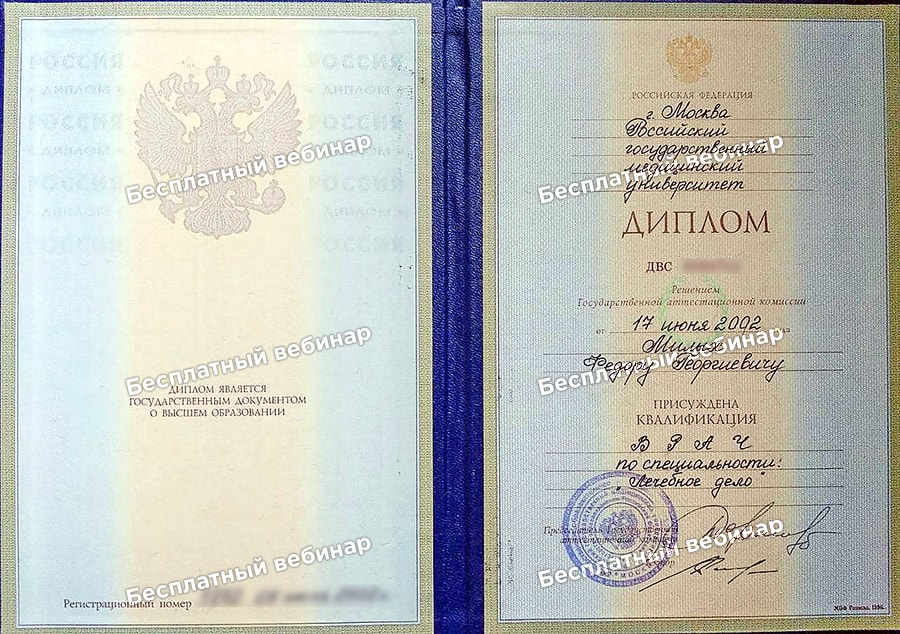 РОССИЯ
РОССИЯ
РОССИЯ
РОССИЯ
РОССИЯ
РОССИЯ
РОССИЯ
Бесплатный вебинар
Бесплатный вебинар
ДИПЛОМ ЯВЛЯЕТСЯ
ГОСУДАРСТВЕННЫМ ДОКУМЕНТОМ
О ВЫСШЕМ ОБРАЗОВАНИИ
Бесплатный вебинар
Регистрационный номер
РОССИЙСКАЯ ФЕДЕРАЦИЯ
г. Москва
Российский
государственный
медицинский
университет
Бесплатный вебинар
ДИПЛОМ
ДВС
Решением
Государственной аттестационной комиссии
от 17 июня 2002 года
Милых
Федору Георгиевичу
Бесплатный вебинар
ПРИСУЖДЕНА
КВАЛИФИКАЦИЯ
ВРАЧ
по специальности:
"Лечебное дело"
Председатель Государственной
аттестационной комиссии
Бесплатный вебинар